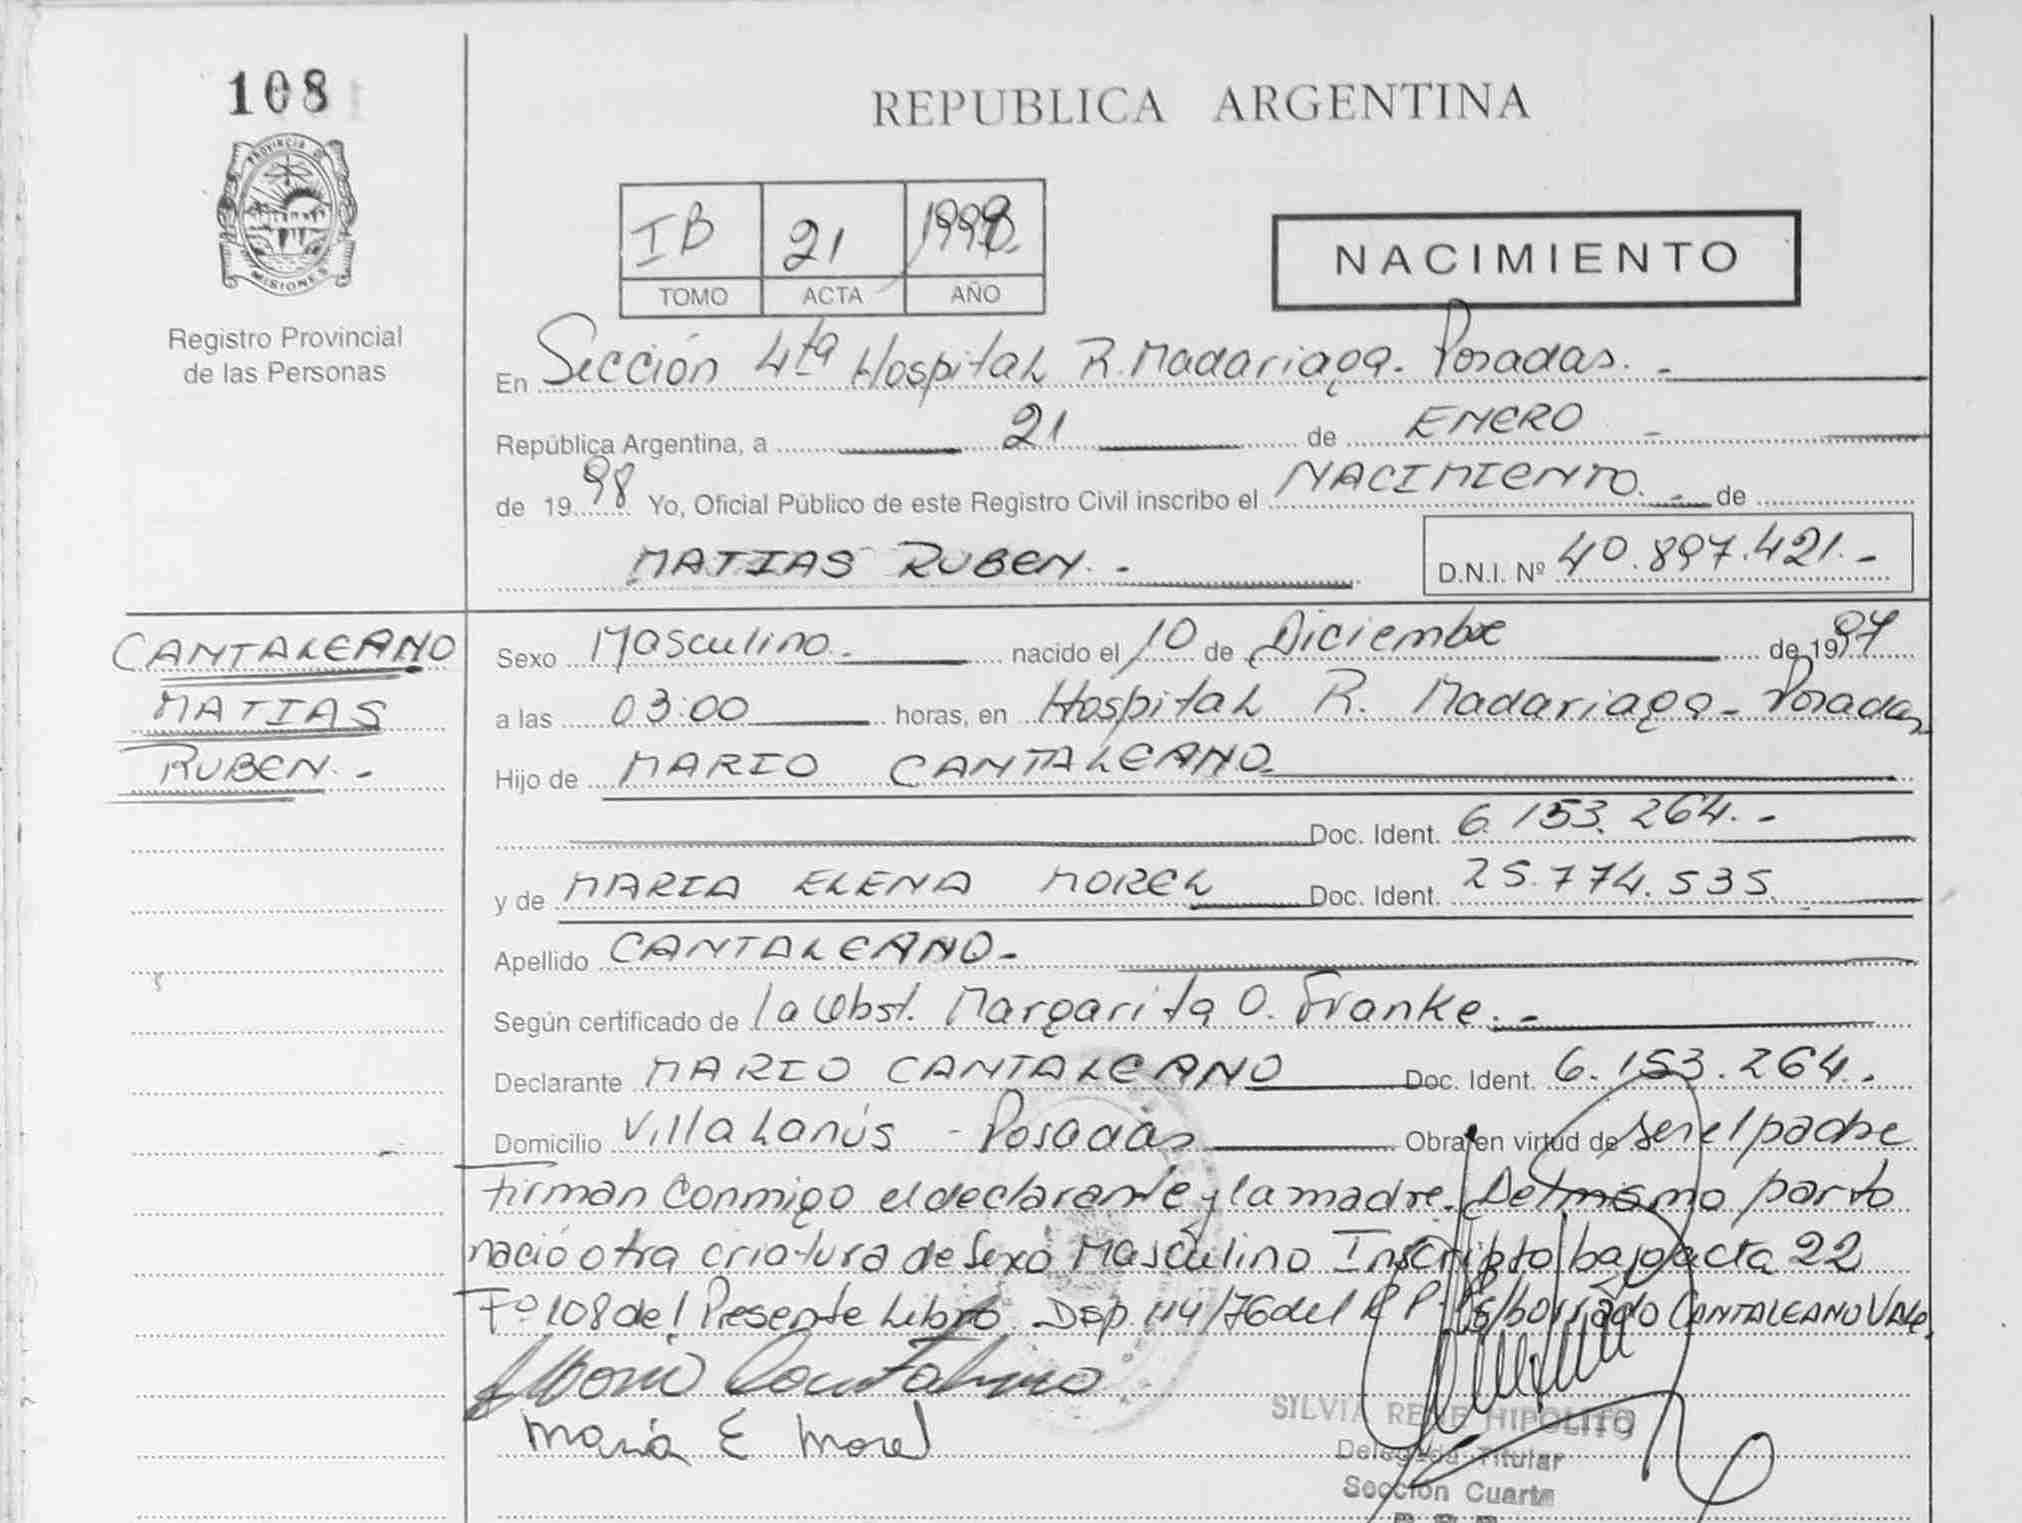 108
PROVINCIA DE
MISIONES
Registro Provincial
de las Personas
REPUBLICA ARGENTINA
IB 21 1998
TOMO ACTA AÑO
NACIMIENTO
En Sección 4ta Hospital R. Madariaga. Posadas. -
República Argentina, a 21 de ENERO -
de 19 98 Yo, Oficial Público de este Registro Civil inscribo el NACIMIENTO. - de
MATIAS RUBEN. -
D.N.I. Nº 40.897.421. -
CANTALEANO
MATIAS
RUBEN. -
Sexo Masculino. nacido el 10 de Diciembre de 1997
a las 03:00 horas, en Hospital R. Madariaga - Posadas
Hijo de MARIO CANTALEANO
Doc. Ident. 6.153.264. -
y de MARIA ELENA MOREL Doc. Ident. 25.774.535.
Apellido CANTALEANO. -
Según certificado de la Obst. Margarita O. Franke. -
Declarante MARIO CANTALEANO Doc. Ident. 6.153.264. .
Domicilio Villa Lanús - Posadas Obra en virtud de ser el padre
Firman conmigo el declarante y la madre. Del mismo parto
nació otra criatura de Sexo Masculino Inscripto bajo acta 22
Fº 108 del Presente Libro. Dsp. 114/76 del R P. Ps/borrado CANTALEANO Vale.
Mario Cantaleano
Maria E Morel
SILVIA RENE HIPOLITO
Delegada Titular
Sección Cuarta